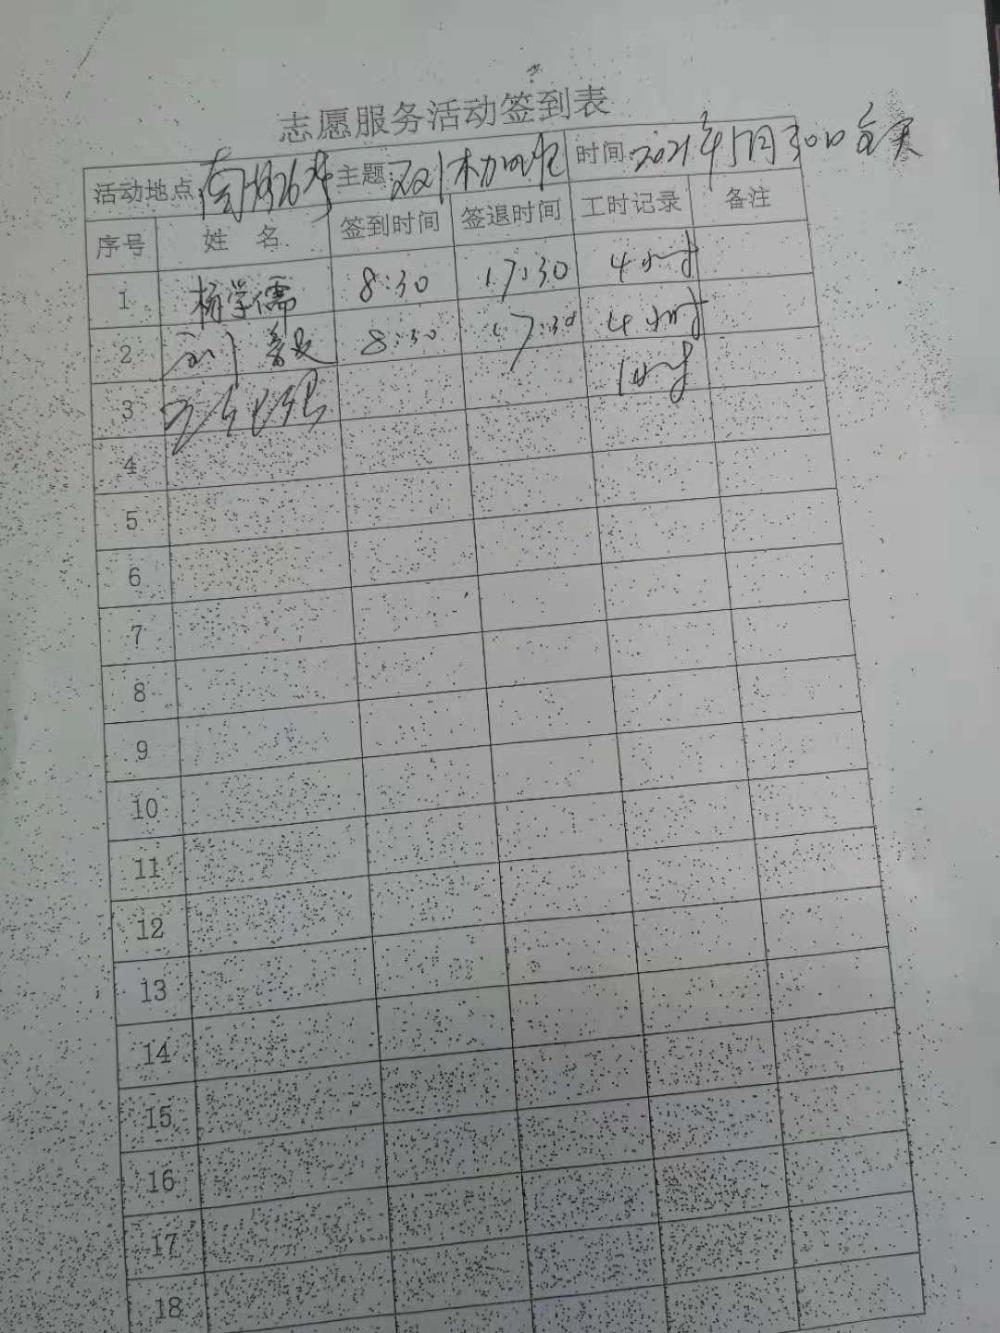 志愿服务活动签到表
活动地点 主题 时间 2021年5月30日
序号 姓 名 签到时间 签退时间 工时记录 备注
1 杨学儒 8:30 17:30 4小时
2 8:30 17:30 4小时
3 1小时
4
5
6
7
8
9
10
11
12
13
14
15
16
17
18